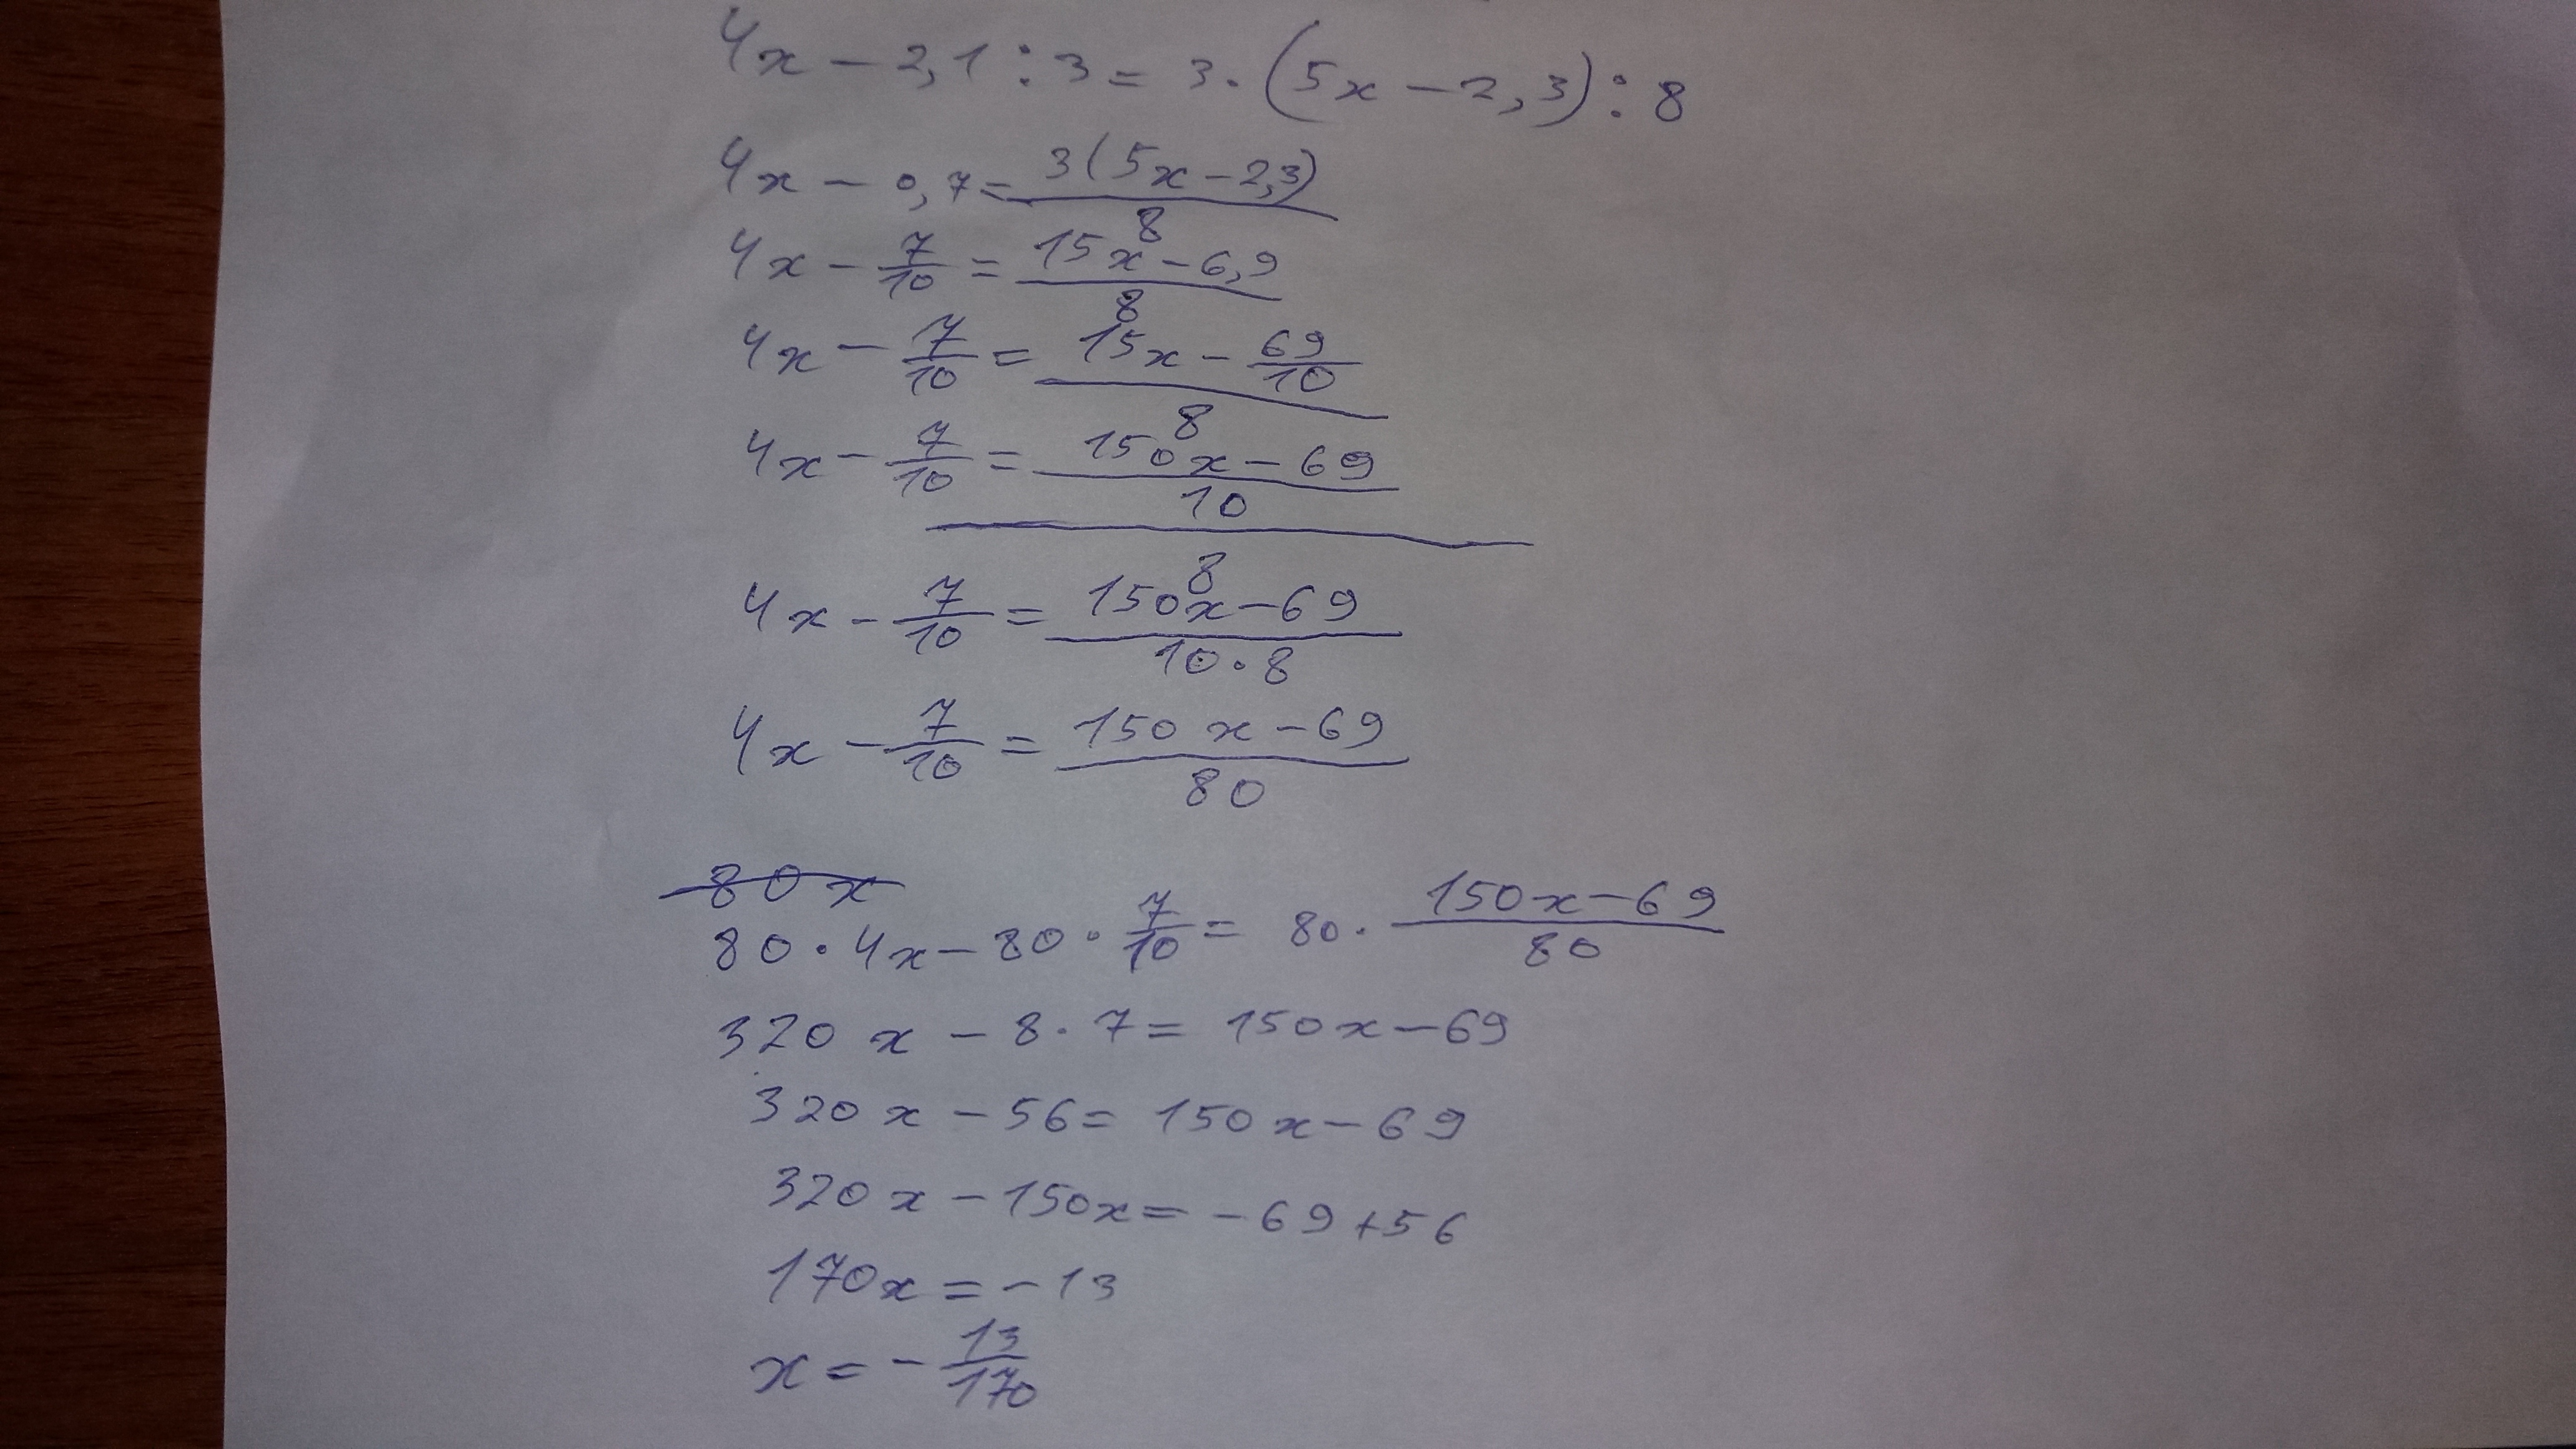 4x - 2,1 : 3 = 3 · (5x - 2,3) : 8
4x - 0,7 = 3(5x - 2,3)/8
4x - 7/10 = (15x - 6,9)/8
4x - 7/10 = (15x - 69/10)/8
4x - 7/10 = ((150x - 69)/10)/8
4x - 7/10 = (150x - 69)/(10 · 8)
4x - 7/10 = (150x - 69)/80
80x
80 · 4x - 80 · 7/10 = 80 · (150x - 69)/80
320x - 8 · 7 = 150x - 69
320x - 56 = 150x - 69
320x - 150x = -69 + 56
170x = -13
x = -13/170